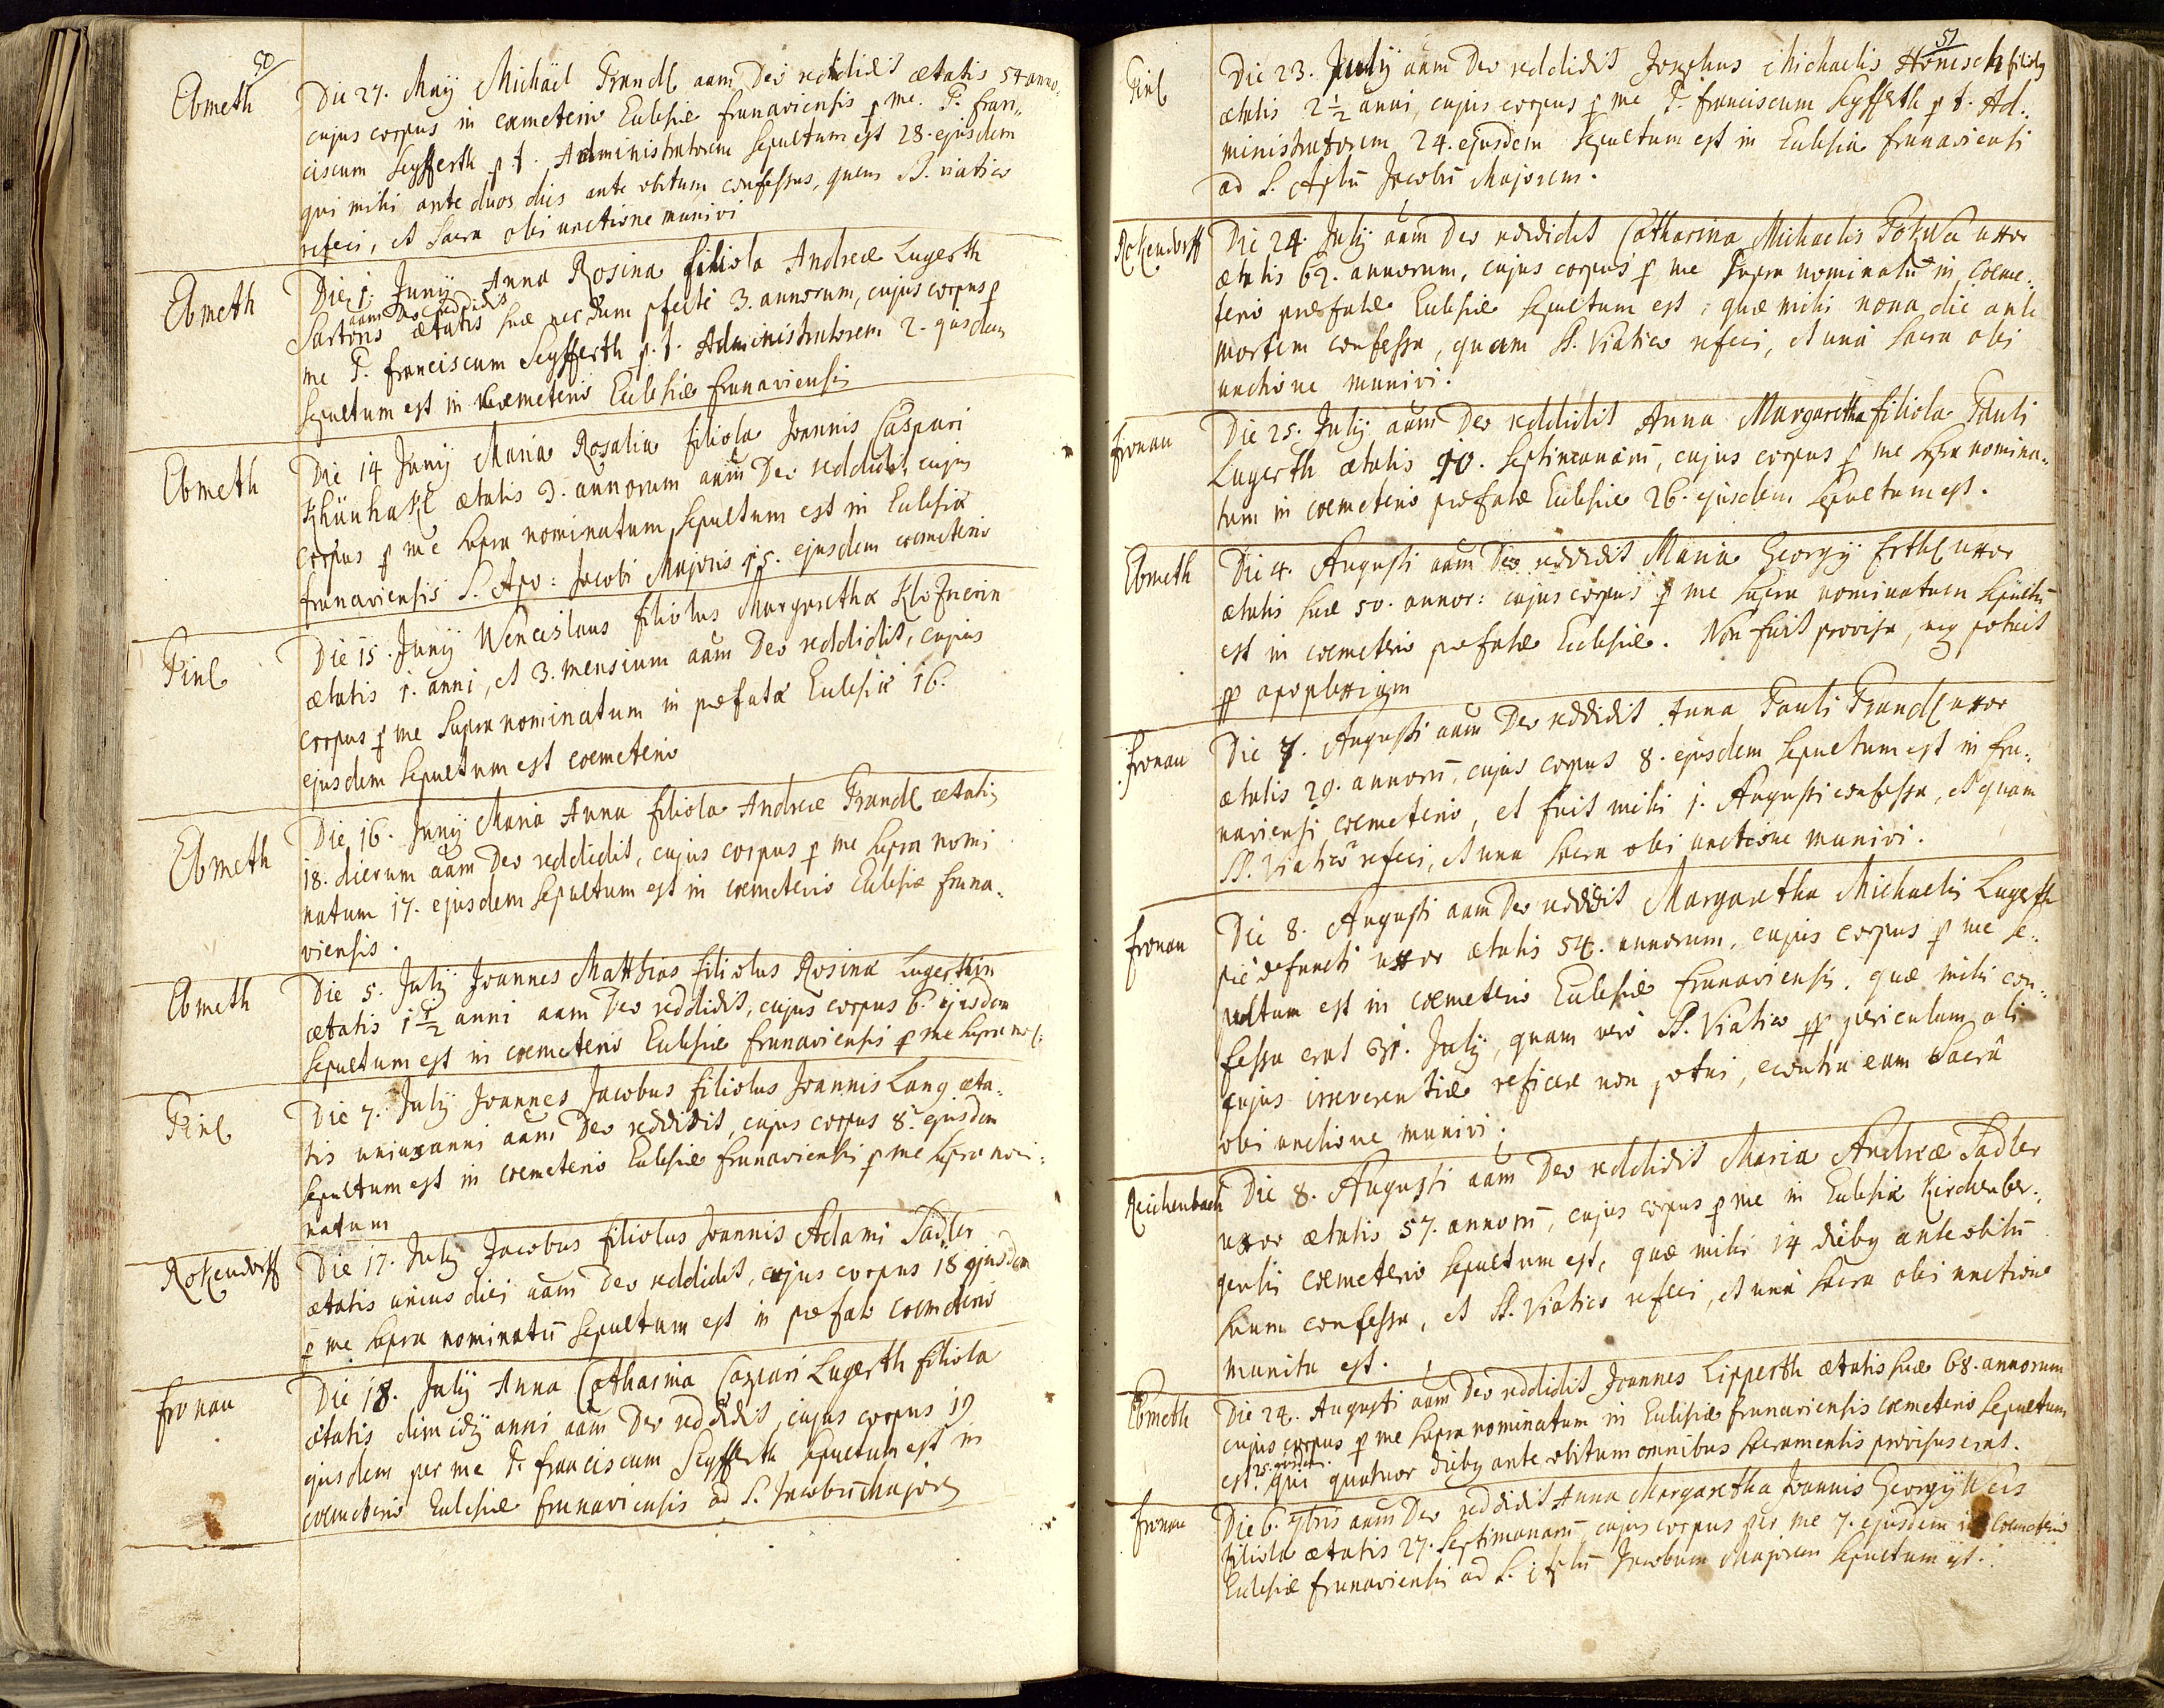 50
Ebmeth
Die 27. Maÿ Michäel Prandl aām Deo reddidit ætatis 54 anno:
cujus corpus in cœmeterio Ecclesiæ frunaviensis p me P. fran:
ciscum Seÿfferth p t. Administratorem sepultum est 28. ejusdem
qui mihi ante duos dies ante obitum confessus, quem SS. viatico
refeci, et sacra olei unctione munivi
Ebmeth
Die 1. Junÿ Anna Rosina filiola Andreæ Lugerth
aam Deo reddidit
Sartoris ætatis suæ necdum pfecte 3. annorum, cujus corpus p
me P. franciscum Seÿfferth p. t. Administratorem 2. ejusdem
sepultum est in cœmeterio Ecclesiæ frunaviensis
Ebmeth
Die 14 Junÿ Maria Rosalia filiola Joannis Caspari
Khünhakl ætatis 3. annorum aām Deo reddidit, cujus
corpus p me supra nominatum sepultum est in Ecclesiæ
frunaviensis S. Apo: Jacobi Majoris 15. ejusdem cœmeterio
Pirl
Die 15. Junÿ Wenceslaus filiolus Margarethæ
ætatis 1. anni, et 3. mensium aām Deo reddidit, cujus
corpus p me supra nominatum in præfatæ Ecclesiæ 16.
ejusdem sepultum est cœmeterio
Ebmeth
Die 16. Junÿ Maria Anna filiola Andreæ Prandl ætatis
18. dierum aām Deo reddidit, cujus corpus p me supra nomi
natum 17. ejusdem sepultum est in cœmeterio Ecclesiæ fruna:
viensis.
Ebmeth
Die 5. Julÿ Joannes Matthias filiolus Rosinæ Lugerthin
ætatis 1 1/2 anni aam Deo reddidit, cujus corpus 6. ejusdem
sepultum est in cœmeterio Ecclesiæ frunaviensis p me supra
Pirl
Die 7. Julÿ Joannes Jacobus filiolus Joannis Lang æta:
tis unius anni aām Deo reddidit, cujus corpus 8. ejusdem
sepultum est in cœmeterio Ecclesiæ frunaviensis p me supra nomi:
natum
Rokendorff
Die 17. Julÿ Jacobus filiolus Joannis Adami Sadler
ætatis unius diei aām Deo reddidit, cujus corpus 18 ejusdem
p me supra nominatū sepultum est in præfato cœmeterio
fronau
Die 18. Julÿ Anna Catharina Caspari Lugerth filiola
ætatis dimidÿ anni aām Deo reddidit, cujus corpus 19
ejusdem per me P. franciscum Seÿfferth sepultum est in
cœmeterio Ecclesiæ frunaviensis ad S. Jacobū Majorem
51
Pirl
Die 23. Julÿ aām Deo reddidit Josephus Michaelis Hönisch filiolus
ætatis 2 1/2 anni, cujus corpus p me P. franciscum Seÿfferth p t. Ad:
ministratorem 24. ejusdem sepultum est in Ecclesia frunaviensi
ad S. Aplū Jacobū Majorem.
Rokendorff
Die 24. Julÿ aām Deo reddidit Catharina Michaelis uxor
ætatis 62. annorum, cujus corpus p me supra nominatū in Cœme:
terio præfatæ Ecclesiæ sepultum est, quæ mihi nona die ante
mortem confessa, quam SS. Viatico refeci, et unà sacra olei
unctione munivi.
fronau
Die 25. Julÿ aām Deo reddidit Anna Margaretha filiola Pauli
Lugerth ætatis 10. septimanarū, cujus corpus p me supra nomina:
tum in cœmeterio præfatæ Ecclesiæ 26. ejusdem sepultum est.
Ebmeth
Die 4. Augusti aām Deo reddidit Maria Georgÿ Erthl uxor
ætatis suæ 50. annor: cujus corpus p me supra nominatum sepultū
est in cœmeterio præfatæ Ecclesiæ. Non fuit provisa, neq potuit
pp apoplexiam
fronau
Die 7. Augusti aām Deo reddidit Anna Pauli Prandl uxor
ætatis 29. annorū, cujus corpus 8. ejusdem sepultum est in fru:
naviensi cœmeterio, et fuit mihi 1. Augusti confessa, et quam
SS. Viatico refeci, et una sacra olei unctione munivi.
fronau
Die 8. Augusti aam Deo reddidit Margaretha Michaelis Lugerth
piè defuncti uxor ætatis 54. annorum, cujus corpus p me se:
pultum est in cœmeterio Ecclesiæ frunaviensis, quæ mihi con:
fessa erat 31. Julÿ, quam verò SS. Viatico pp periculum ali
cujus irreverentiæ reficere non potui, econtra eam sacrâ
olei unctione munivi.
Reichenbach
Die 8. Augusti aām Deo reddidit Maria Andreæ Sadler
uxor ætatis 57. annorū, cujus corpus p me in Ecclesiæ Kirchenber:
gensis cœmeterio sepultum est, quæ mihi 14 diebq ante obitū
suum confessa, et SS. Viatico refeci, et unà sacra olei unctione
munita est.
Ebmeth
Die 24. Augusti aām Deo reddidit Joannes Lipperth ætatis suæ 68. annorum
cujus corpus p me supra nominatum in Ecclesiæ frunaviensis cœmeterio sepultum
25. ejusdem
est. qui quatuor diebq ante obitum omnibus sacramentis provisus erat.
fronau
Die 6. 7bris aām Deo reddidit Anna Margaretha Joannis Georgÿ Weis
filiola ætatis 27. septimanarū cujus corpus per me 7. ejusdem in Cœmeterio
Ecclesiæ frunaviensis ad S. Aplū Jacobum Majorem sepultum est.